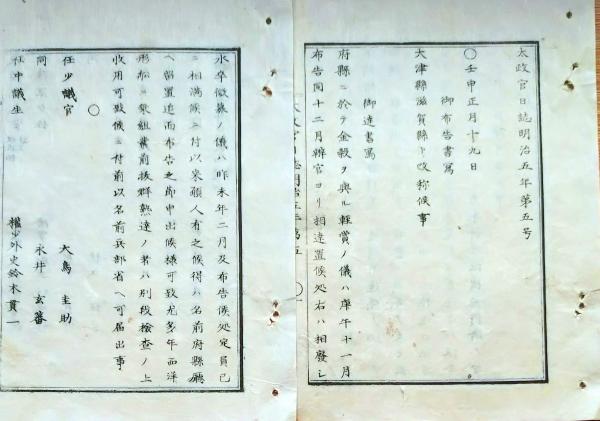 太政官日誌明治五年第五号
〇壬申正月十九日
御布告書寫
大津縣滋賀縣ト改称候事
御達書寫
府縣ニ於テ金穀ヲ與ル軽賞ノ儀ハ庚午十一月
布告同十二月辨官ヨリ相達置候処右ハ相廢シ
水卒徴募ノ儀ハ昨未年二月及布告候処定員已
ニ相満候ニ付以来願人有之候得ハ名前府縣廳
ヘ留置追而布告之節申出候様可致尤多年西洋
形船ニ乗組業前抜群熟達ノ者ハ別段検査ノ上
收用可致儀ニ付前以名前兵部省ヘ可届出事
〇
任少議官
大鳥圭助
同
永井玄蕃
任中議生
權少外史鈴木貫一